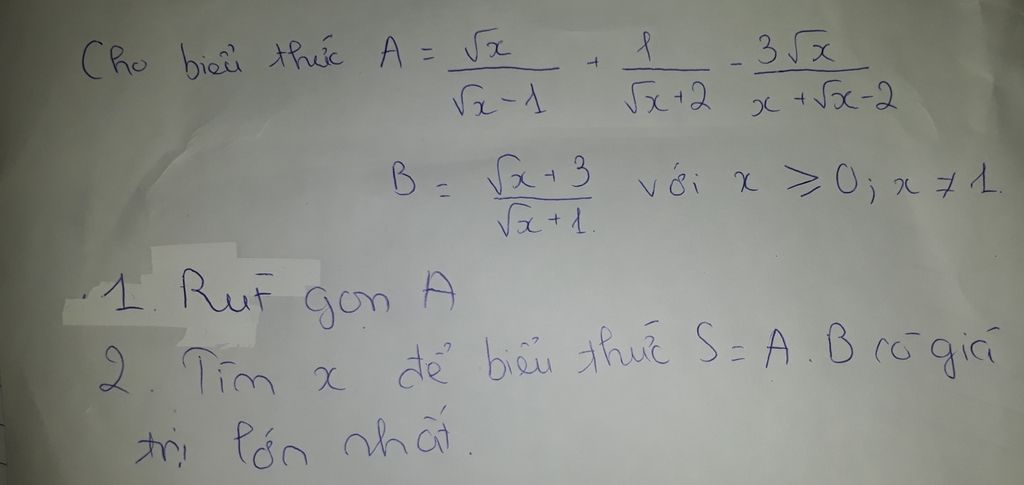 Cho biểu thức A = √x/(√x-1) + 1/(√x+2) - 3√x/(x+√x-2)
B = (√x+3)/(√x+1) với x ≥ 0; x ≠ 1.
1. Rút gọn A
2. Tìm x để biểu thức S = A.B có giá
trị lớn nhất.